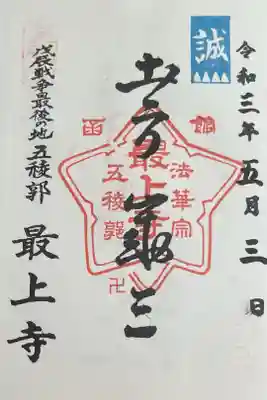 誠
令和三年五月三日
土方歳三
函館
最上寺
法華宗
五稜郭
卍
戊辰戦争最後の地
五稜郭
最上寺